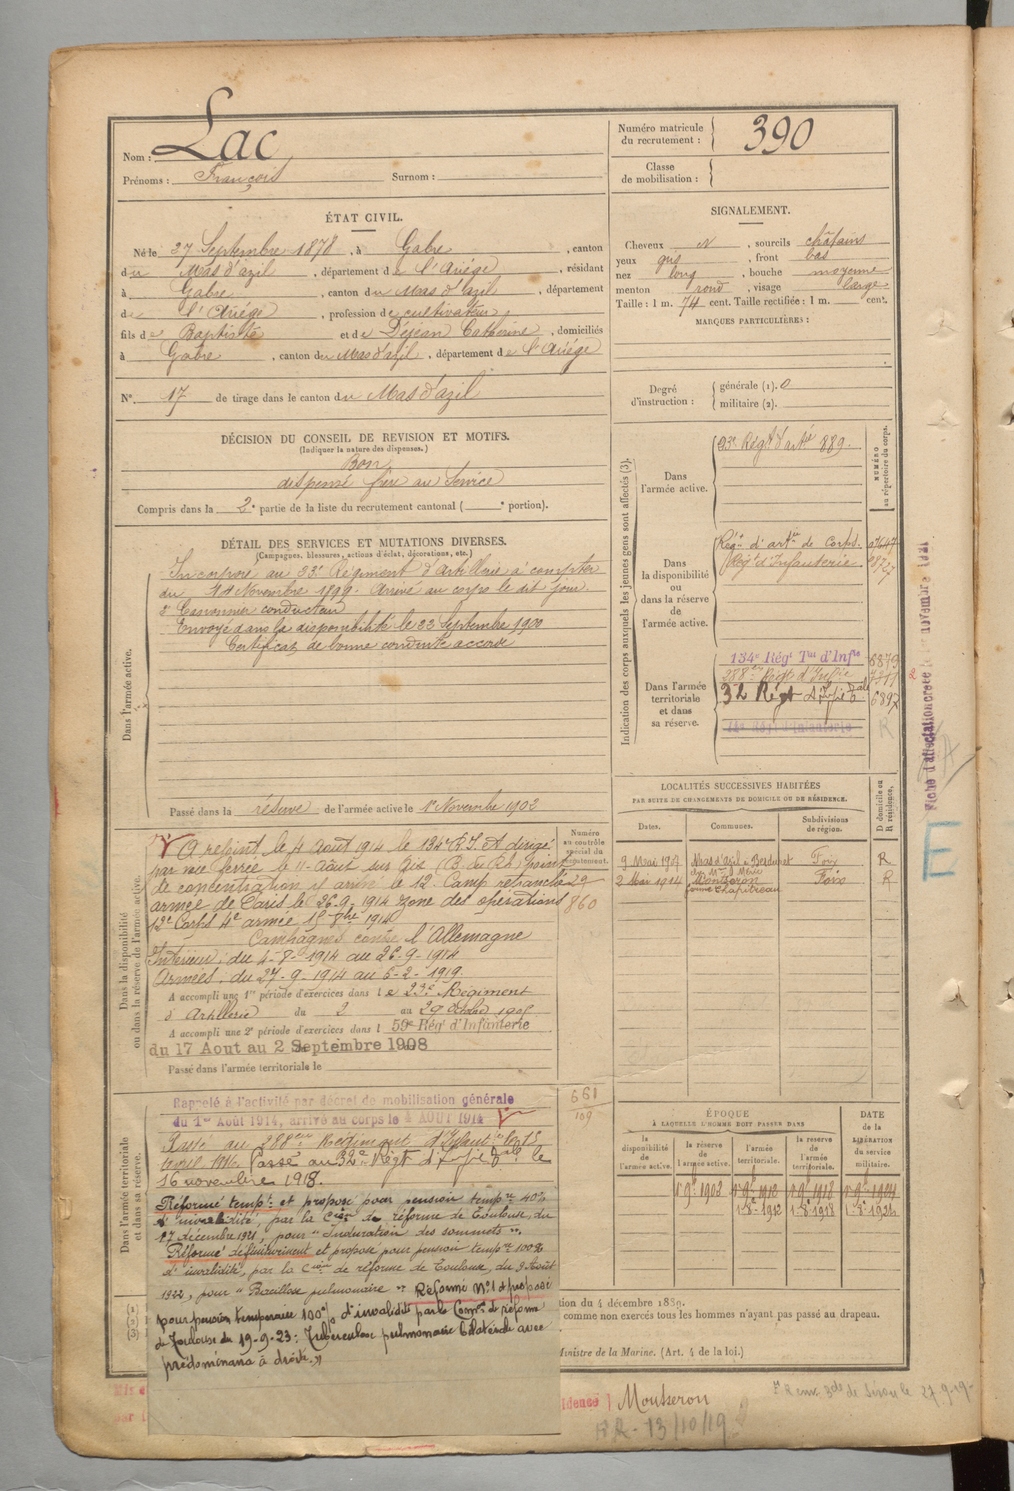 Nom : Lac
Prénoms : François Surnom :
Numéro matricule du recrutement : 390
Classe de mobilisation :
ÉTAT CIVIL.
Né le 27 Septembre 1878, à Gabre, canton
du Mas d'azil, département de l'Ariége, résidant
à Gabre, canton du Mas d'azil, département
de l'Ariége, profession de cultivateur,
fils de Baptiste et de Dejean Catherine, domiciliés
à Gabre, canton du Mas d'azil, département de l'Ariége
N° 17 de tirage dans le canton du Mas d'azil
SIGNALEMENT.
Cheveux N, sourcils châtains
yeux gris, front bas
nez long, bouche moyenne
menton rond, visage large
Taille : 1 m. 74 cent. Taille rectifiée : 1 m. cent.
MARQUES PARTICULIÈRES :
Degré d'instruction : générale (1). 0
militaire (2).
DÉCISION DU CONSEIL DE REVISION ET MOTIFS.
(Indiquer la nature des dispenses.)
Bon
dispensé frère au Service
Compris dans la 2e partie de la liste du recrutement cantonal ( e portion).
DÉTAIL DES SERVICES ET MUTATIONS DIVERSES.
(Campagnes, blessures, actions d'éclat, décorations, etc.)
Dans l'armée active.
Incorporé au 23e Régiment d'Artillerie à compter
du 14 Novembre 1899. Arrivé au corps le dit jour
2e Canonnier conducteur
Envoyé dans la disponibilité le 22 Septembre 1900
Certificat de bonne conduite accordé
Passé dans la réserve de l'armée active le 1er Novembre 1902
Indication des corps auxquels les jeunes gens sont affectés (3).
NUMÉRO au répertoire du corps.
Dans l'armée active.
23e Régt d'artie 889.
Dans la disponibilité ou dans la réserve de l'armée active.
Régt d'artie de Corps.
Régt d'Infanterie
Dans l'armée territoriale et dans sa réserve.
134e Régt Tal d'Infie 6879
288e Régt d'Infie
32 Régt d'Infie Tale 6897
R
Fiche d'affectation créée le novembre 1921
E
LOCALITÉS SUCCESSIVES HABITÉES
PAR SUITE DE CHANGEMENTS DE DOMICILE OU DE RÉSIDENCE.
Dates. Communes. Subdivisions de région. D domicile ou R résidence.
9 Mai 1907 Mas d'azil à Foix R
2 Mai 1914 Montseron Foix R
Dans la disponibilité ou dans la réserve de l'armée active.
Numéro au contrôle spécial du recrutement.
29
860
A rejoint le 4 Août 1914 le 134e R.I. et dirigé
par voie ferrée le 11 Août sur Gis point
de concentration et arrivé le 12. Camp retranché
armée de Paris le 26-9-1914 Zone des opérations
12e Corps 4e armée 15 8bre 1914
Campagnes contre l'Allemagne
Intérieur, du 4-8-1914 au 26-9-1914
Armées, du 27-9-1914 au 6-2-1919.
A accompli une 1re période d'exercices dans le 23e Régiment
d'Artillerie du 2 au 29 Octobre
A accompli une 2e période d'exercices dans l 59e Régt d'Infanterie
du 17 Aout au 2 Septembre 1908
Passé dans l'armée territoriale le
661
109
Dans l'armée territoriale et dans sa réserve.
Rappelé à l'activité par décret de mobilisation générale
du 1er Août 1914, arrivé au corps le 4 AOUT 1914
Passé au 288eme Régiment d'Infant le 15
Avril 1916. Passé au 32e Régt d'Infie Tale le
16 novembre 1918.
Réformé tempt et proposé pour pension tempre 40%
d'invalidité, par la Cion de réforme de Toulouse, du
17 décembre 1921, pour "Induration des sommets".
Réformé définitivement et proposé pour pension tempre 100%
d'invalidité, par la Cion de réforme de Toulouse, du 9 Août
1922, pour "Bacillose pulmonaire" Réformé N°1 et proposé
pour pension temporaire 100% d'invalidité par la Comon de réforme
de Toulouse du 19-9-23 : Tuberculose pulmonaire bilatérale avec
prédominance à droite."
ÉPOQUE
À LAQUELLE L'HOMME DOIT PASSER DANS
la disponibilité de l'armée active. la réserve de l'armée active. l'armée territoriale. la réserve de l'armée territoriale. DATE de la LIBÉRATION du service militaire.
1er 9bre 1902 1er 9bre 1912 1er 9bre 1918 1er 9bre 1924
1.8e 1912 1.8e 1918 1.8e 1924
(1)
(2)
(3)
tion du 4 décembre 1889.
comme non exercés tous les hommes n'ayant pas passé au drapeau.
Ministre de la Marine. (Art. 4 de la loi.)
idence] Montseron
RR-13/10/19
27-9-19-